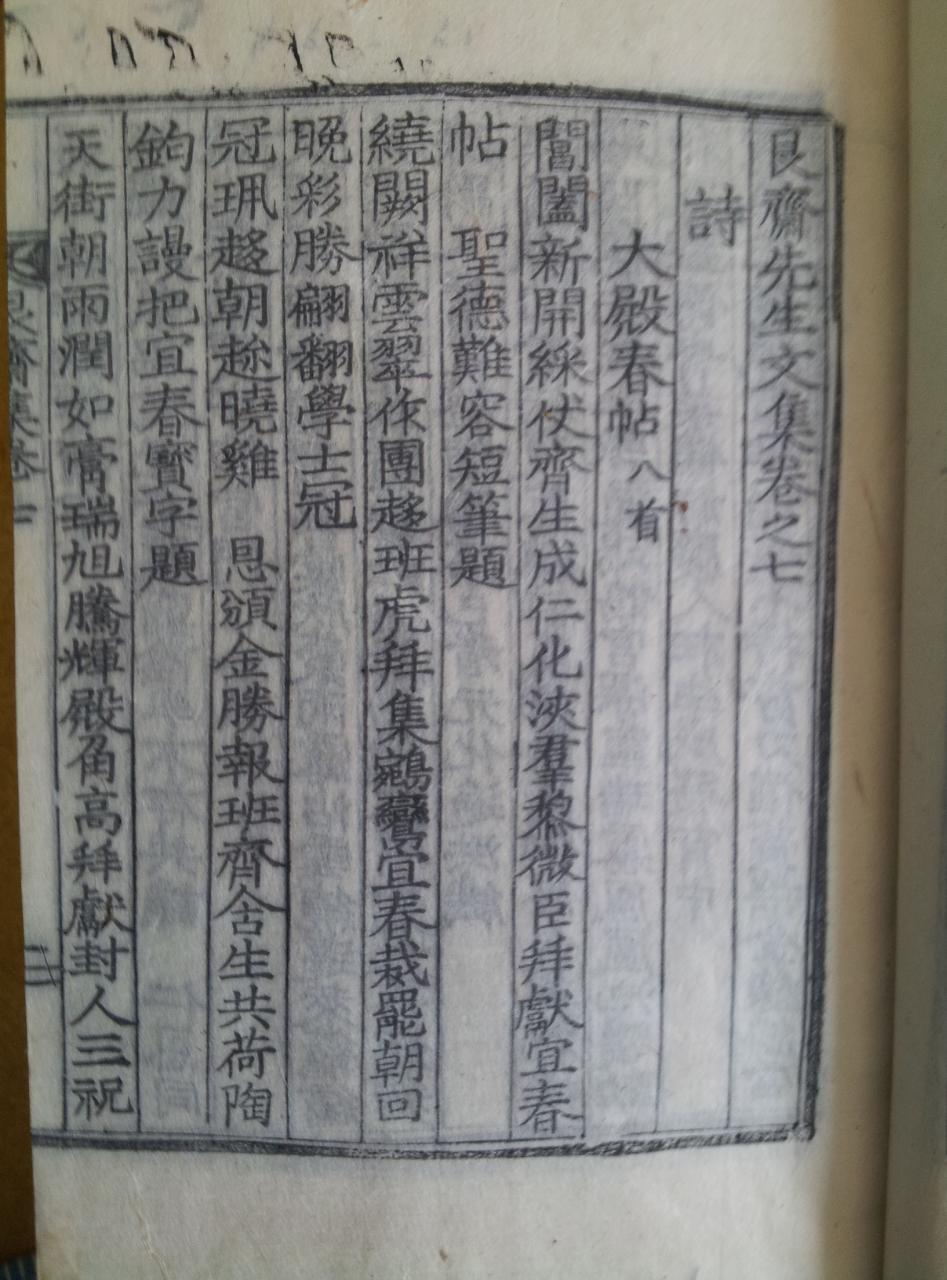 艮齋先生文集卷之七
詩
大殿春帖 八首
閶闔新開綵仗齊生成仁化浹羣黎微臣拜獻宜春
帖 聖德難容短筆題
繞闕祥雲翠作團趍班虎拜集鵷鸞宜春裁罷朝回
晚彩勝翩翻學士冠
冠珮趍朝趂曉雞 恩頒金勝報班齊含生共荷陶
鈞力謾把宜春寶字題
天街朝雨潤如膏瑞旭騰輝殿角高拜獻封人三祝
艮齋集卷七